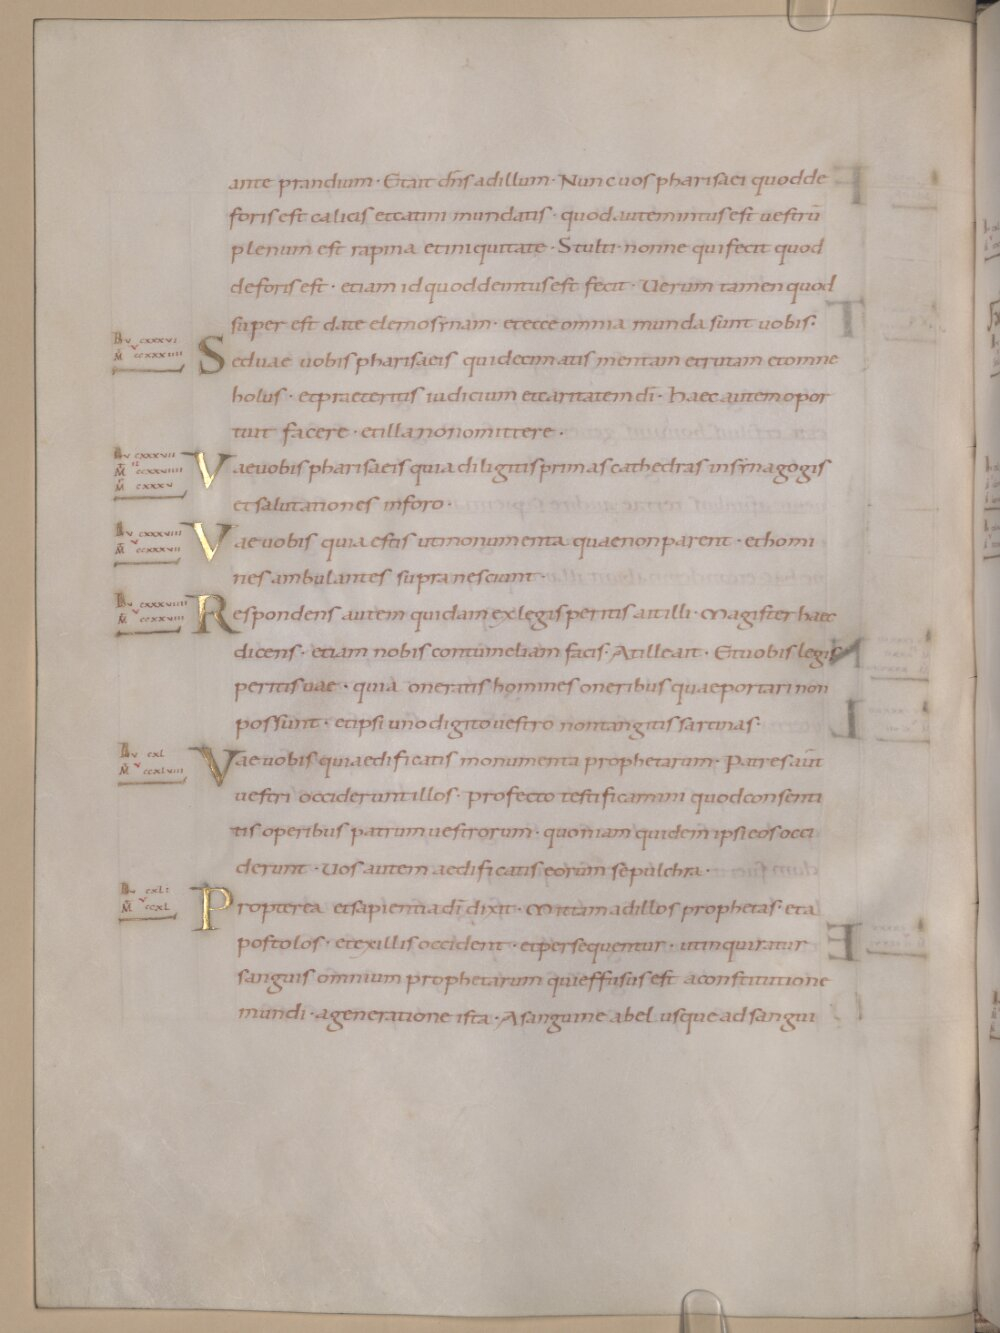 ante prandium · Et ait dn̄s ad illum · Nunc uos pharisaei quod de
foris est calicis et catini mundatis · quod autem intus est uestrū
plenum est rapina et iniquitate · Stulti · nonne qui fecit quod
de foris est · etiam id quod deintus est fecit · Uerum tamen quod
super est date elemosynam · et ecce omnia munda sunt uobis ·
L̄v cxxxvi
M̄ ccxxxiiii
Sed uae uobis pharisaeis qui decimatis mentam et rutam et omne
holus · et praeteritis iudicium et caritatem dī · Haec autem opor
tuit facere · et illa non omittere ·
L̄v cxxxvii
M̄ ccxxviiii
M̄ cxxxv
Vae uobis pharisaeis quia diligitis primas cathedras in synagogis
et salutationes in foro ·
L̄v cxxxviii
M̄ ccxxxvii
Vae uobis quia estis ut monumenta quae non parent · et homi
nes ambulantes supra nesciunt ·
L̄v cxxxviiii
M̄ ccxxviiii
Respondens autem quidam ex legis peritis ait illi · Magister haec
dicens · etiam nobis contumeliam facis · At ille ait · Et uobis legis
peritis uae · quia oneratis homines oneribus quae portari non
possunt · et ipsi uno digito uestro non tangitis sarcinas ·
L̄v cxl
M̄ ccxlviii
Vae uobis quia edificatis monumenta prophetarum · Patres aūt
uestri occiderunt illos · profecto testificamini quod consenti
tis operibus patrum uestrorum · quoniam quidem ipsi eos occi
derunt · Uos autem aedificatis eorum sepulchra ·
L̄v cxli
M̄ ccxl
Propterea et sapientia dī dixit · Mittam ad illos prophetas · et a
postolos · et ex illis occident · et persequentur · ut inquiratur
sanguis omnium prophetarum qui effusus est a constitutione
mundi · a generatione ista · A sanguine abel usque ad sangui